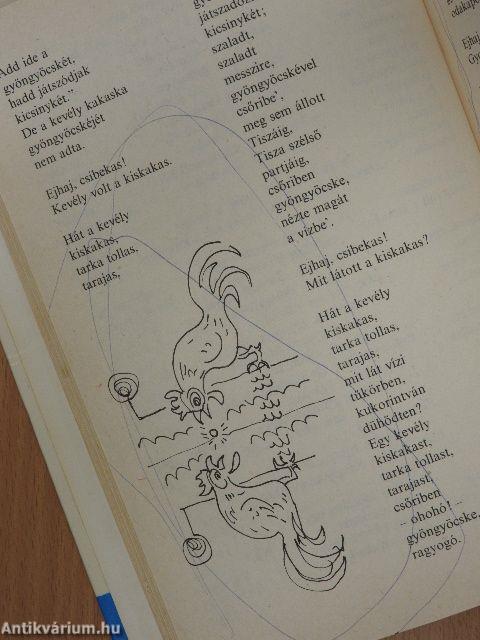 Add ide a
gyöngyöcskét,
hadd játszódjak
kicsinykét."
De a kevély kakaska
gyöngyöcskéjét
nem adta.
Ejhaj, csibekas!
Kevély volt a kiskakas.
Hát a kevély
kiskakas,
tarka tollas,
tarajas,
játszadoz
kicsinykét;
szaladt,
szaladt
messzire,
gyöngyöcskével
csőribe',
meg sem állott
Tiszáig,
Tisza szélső
partjáig,
csőriben
gyöngyöcske,
nézte magát
a vízbe'.
Ejhaj, csibekas!
Mit látott a kiskakas?
Hát a kevély
kiskakas,
tarka tollas,
tarajas,
mit lát vízi
tükörben,
kukorintván
dühödten?
Egy kevély
kiskakast,
tarka tollast,
tarajast,
csőriben
– ohohó! –
gyöngyöcske,
ragyogó.
Ejhaj
Antikvárium.hu